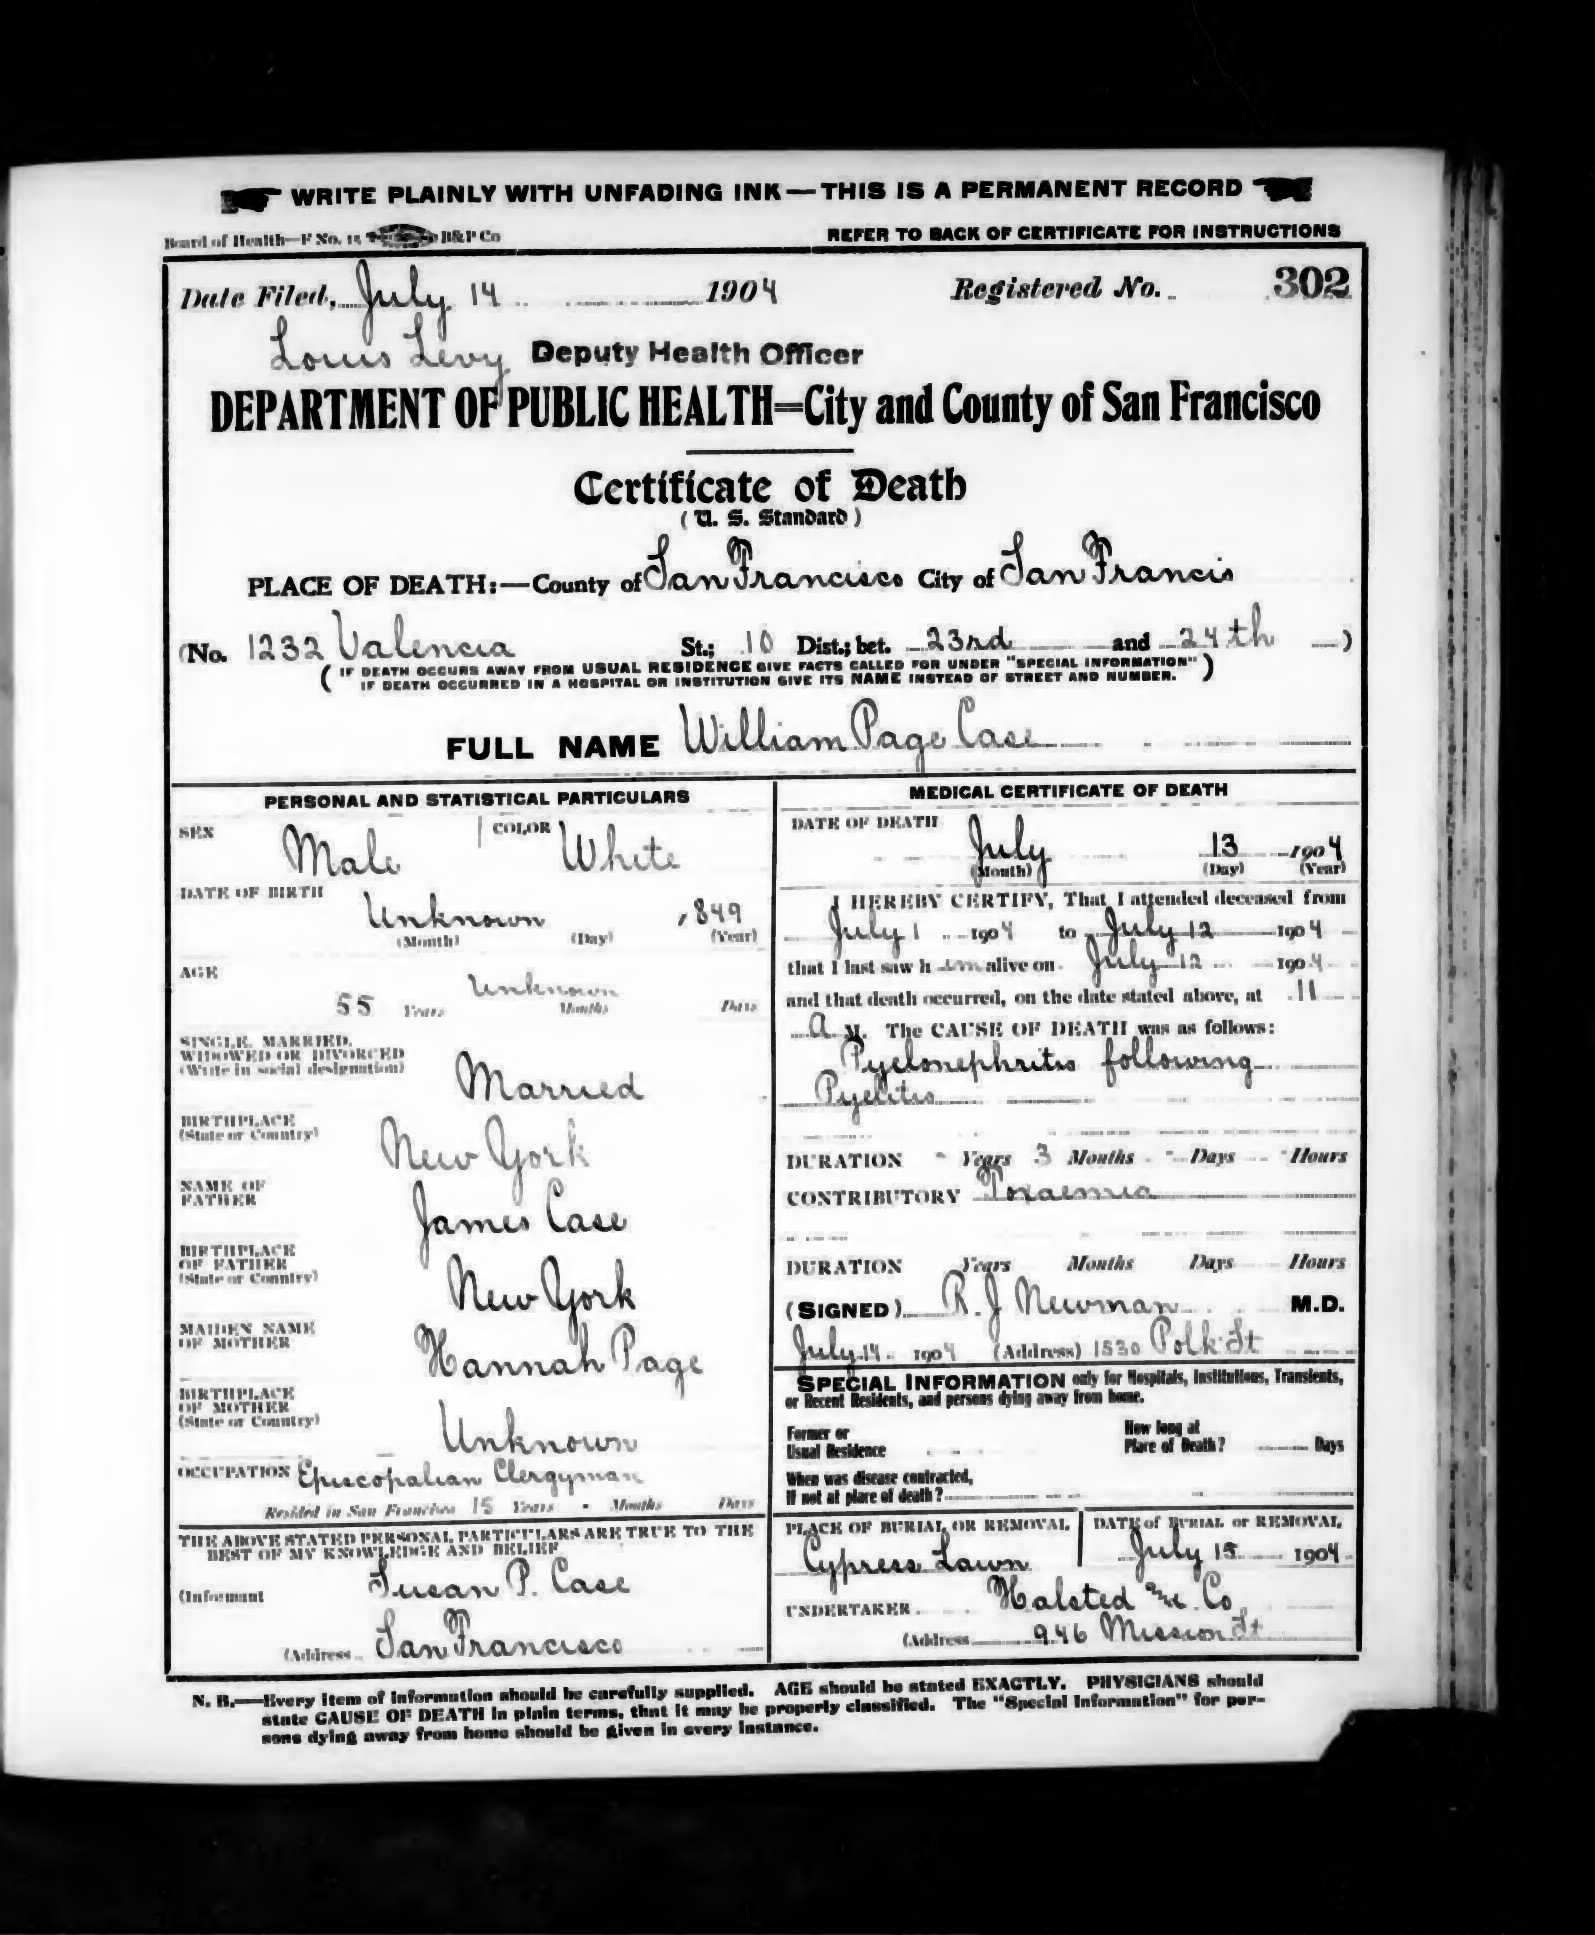 WRITE PLAINLY WITH UNFADING INK—THIS IS A PERMANENT RECORD
Board of Health—F No. 15 B&P Co
REFER TO BACK OF CERTIFICATE FOR INSTRUCTIONS
Date Filed, July 14 1904 Registered No. 302
Louis Levy Deputy Health Officer
DEPARTMENT OF PUBLIC HEALTH=City and County of San Francisco
Certificate of Death
(U. S. Standard)
PLACE OF DEATH:—County of San Francisco City of San Francis
(No. 1232 Valencia St.; 10 Dist.; bet. 23rd and 24th )
(IF DEATH OCCURS AWAY FROM USUAL RESIDENCE GIVE FACTS CALLED FOR UNDER "SPECIAL INFORMATION"
IF DEATH OCCURRED IN A HOSPITAL OR INSTITUTION GIVE ITS NAME INSTEAD OF STREET AND NUMBER.)
FULL NAME William Page Case
PERSONAL AND STATISTICAL PARTICULARS
SEX Male COLOR White
DATE OF BIRTH
Unknown 1849
(Month) (Day) (Year)
AGE
55 Years Unknown Months Days
SINGLE, MARRIED,
WIDOWED OR DIVORCED
(Write in social designation)
Married
BIRTHPLACE
(State or Country)
New York
NAME OF
FATHER
James Case
BIRTHPLACE
OF FATHER
(State or Country)
New York
MAIDEN NAME
OF MOTHER
Hannah Page
BIRTHPLACE
OF MOTHER
(State or Country)
Unknown
OCCUPATION Episcopalian Clergyman
Resided in San Francisco 15 Years - Months Days
THE ABOVE STATED PERSONAL PARTICULARS ARE TRUE TO THE
BEST OF MY KNOWLEDGE AND BELIEF
(Informant Susan P. Case
(Address San Francisco
MEDICAL CERTIFICATE OF DEATH
DATE OF DEATH
July 13 1904
(Month) (Day) (Year)
I HEREBY CERTIFY, That I attended deceased from
July 1 1904 to July 12 1904
that I last saw h im alive on July 12 1904
and that death occurred, on the date stated above, at 11
A M. The CAUSE OF DEATH was as follows:
Pyelonephritis following
Pyelitis
DURATION - Years 3 Months - Days - Hours
CONTRIBUTORY Toxaemia
DURATION Years Months Days Hours
(SIGNED) R. J Newman M.D.
July 14 1904 (Address) 1530 Polk St
SPECIAL INFORMATION only for Hospitals, Institutions, Transients,
or Recent Residents, and persons dying away from home.
Former or
Usual Residence
How long at
Place of Death? Days
When was disease contracted,
If not at place of death?
PLACE OF BURIAL OR REMOVAL
Cypress Lawn
DATE of BURIAL or REMOVAL
July 15 1904
UNDERTAKER Halsted and Co
(Address 946 Mission St
N. B.—Every item of information should be carefully supplied. AGE should be stated EXACTLY. PHYSICIANS should
state CAUSE OF DEATH in plain terms, that it may be properly classified. The "Special Information" for per-
sons dying away from home should be given in every instance.